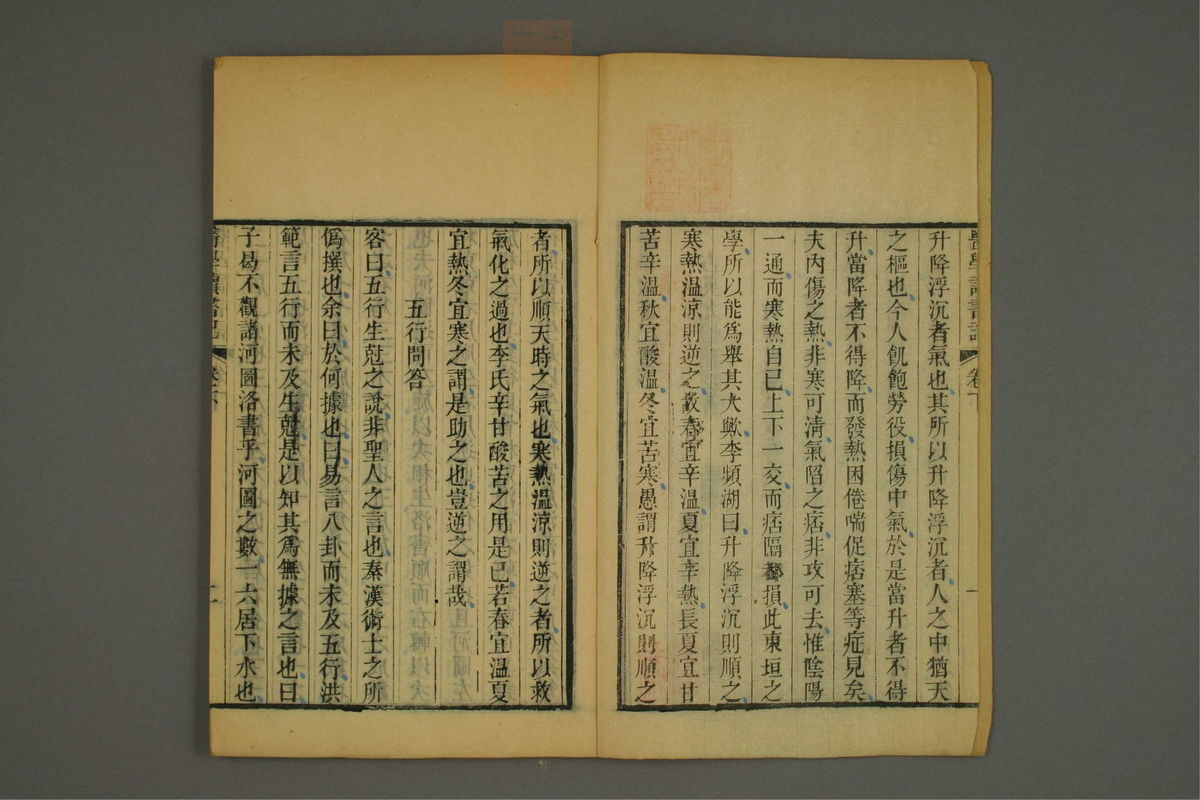 醫學讀書記 卷下 一
升降浮沉者氣也其所以升降浮沉者人之中猶天
之樞也今人飢飽勞役損傷中氣於是當升者不得
升當降者不得降而發熱困倦喘促痞塞等症見矣
夫內傷之熱非寒可清氣陷之痞非攻可去惟陰陽
一通而寒熱自已上下一交而痞隔都損此東垣之
學所以能爲舉其大歟李頻湖曰升降浮沉則順之
寒熱温涼則逆之故春宜辛温夏宜辛熱長夏宜甘
苦辛温秋宜酸温冬宜苦寒愚謂升降浮沉則順之
者所以順天時之氣也寒熱温涼則逆之者所以救
氣化之過也李氏辛甘酸苦之用是已若春宜温夏
宜熱冬宜寒之謂是助之也豈逆之謂哉
五行問答
客曰五行生尅之說非聖人之言也秦漢術士之所
僞撰也余曰於何據也曰易言八卦而未及五行洪
範言五行而未及生尅是以知其爲無據之言也曰
子曷不觀諸河圖洛書乎河圖之數一六居下水也
醫學讀書記 卷下 二